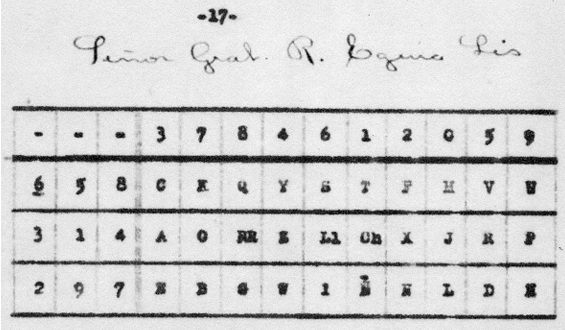 -17-
Señor Gral. R. Eguia Lis
- - - 3 7 8 4 6 1 2 0 5 9
6 5 8 C Q Y S T F H V
3 1 4 A O RR Ll Ch X J R P
2 9 7 B G W I Ñ N L D